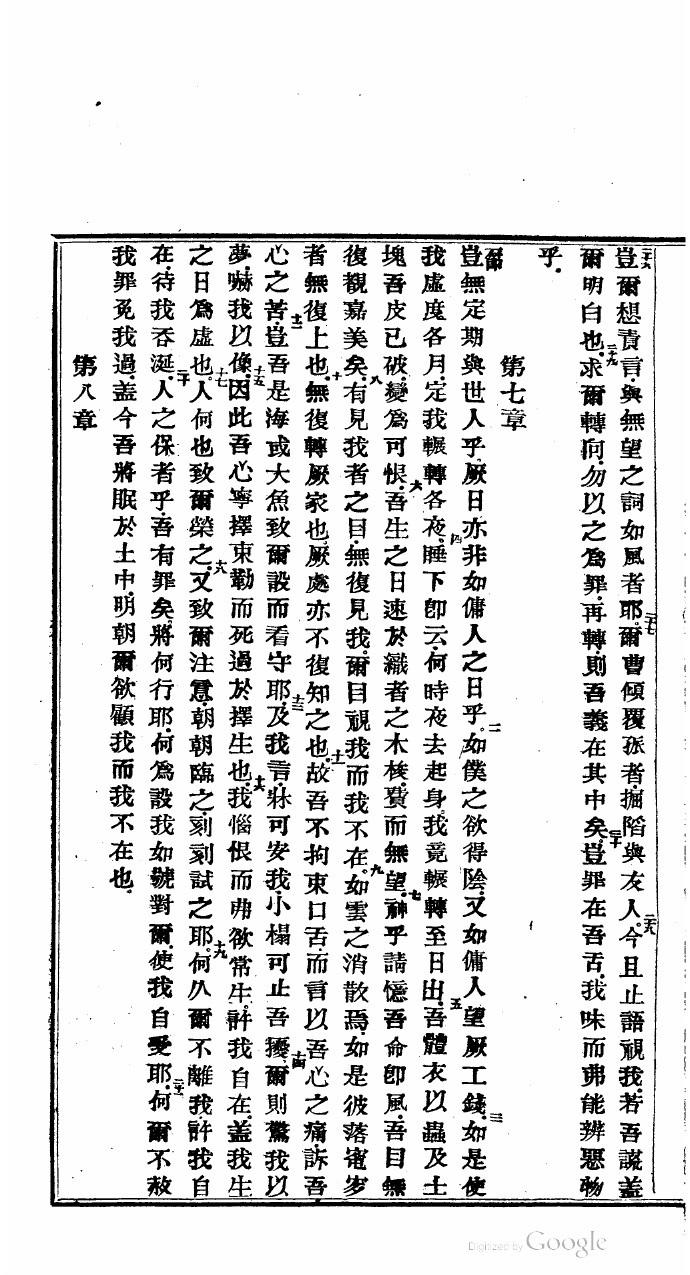 豈爾想責言與無望之詞如風者耶爾曹傾覆孤者掘陷與友人今且止語視我若吾謊蓋
爾明白也求爾轉向勿以之為罪再轉則吾義在其中矣豈罪在吾舌我味而弗能辨惡物
乎
第七章
豈無定期與世人乎厥日亦非如傭人之日乎如僕之欲得陰又如傭人望厥工錢如是使
我虛度各月定我輾轉各夜睡下卽云何時夜去起身我竟輾轉至日出吾體衣以蟲及土
塊吾皮已破變為可恨吾生之日速於織者之木梭費而無望神乎請憶吾命卽風吾目無
復觀嘉美矣有見我者之目無復見我爾目視我而我不在如雲之消散焉如是彼落窀穸
者無復上也無復轉厥家也厥處亦不復知之也故吾不拘束口舌而言以吾心之痛訴吾
心之苦豈吾是海或大魚致爾設而看守耶及我言牀可安我小榻可止吾擾爾則驚我以
夢嚇我以像因此吾心寧擇束勒而死過於擇生也我惱恨而弗欲常生許我自在蓋我生
之日為虛也人何也致爾榮之又致爾注意朝朝臨之刻刻試之耶何久爾不離我許我自
在待我吞涎人之保者乎吾有罪矣將何行耶何為設我如號對爾使我自愛耶何爾不赦
我罪免我過蓋今吾將眠於土中明朝爾欲顧我而我不在也
第八章
Digitized by Google